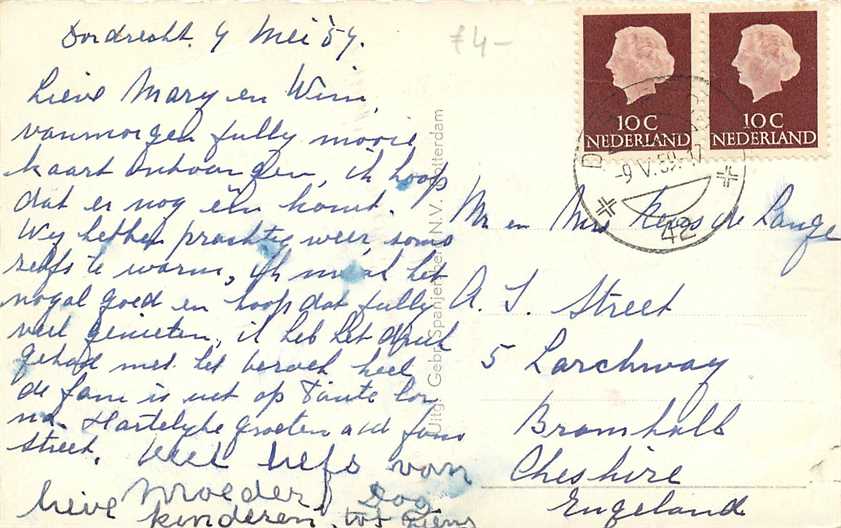 Dordrecht 9 Mei '59.
£4-
Lieve Mary en Wim,
vanmorgen jully mooie
kaart ontvangen, ik hoop
dat er nog één komt.
Wij hebben prachtig weer, soms
zelfs te warm, ik maak het
nogal goed en hoop dat jully
veel genieten, ik heb het druk
gehad met het bezoek heel
de fam is uit op Tante Cor
na. Hartelijke groeten a d fam
Street. Veel liefs van
Moeder Dag
lieve kinderen, tot ziens
Uitg. Gebr. Spanjersberg N.V. Rotterdam
10 C
NEDERLAND
10 C
NEDERLAND
-9 V.59.-17
42
Mr en Mrs Kees de Lange
A. S. Street
5 Larchway
Bramhall
Cheshire
Engeland